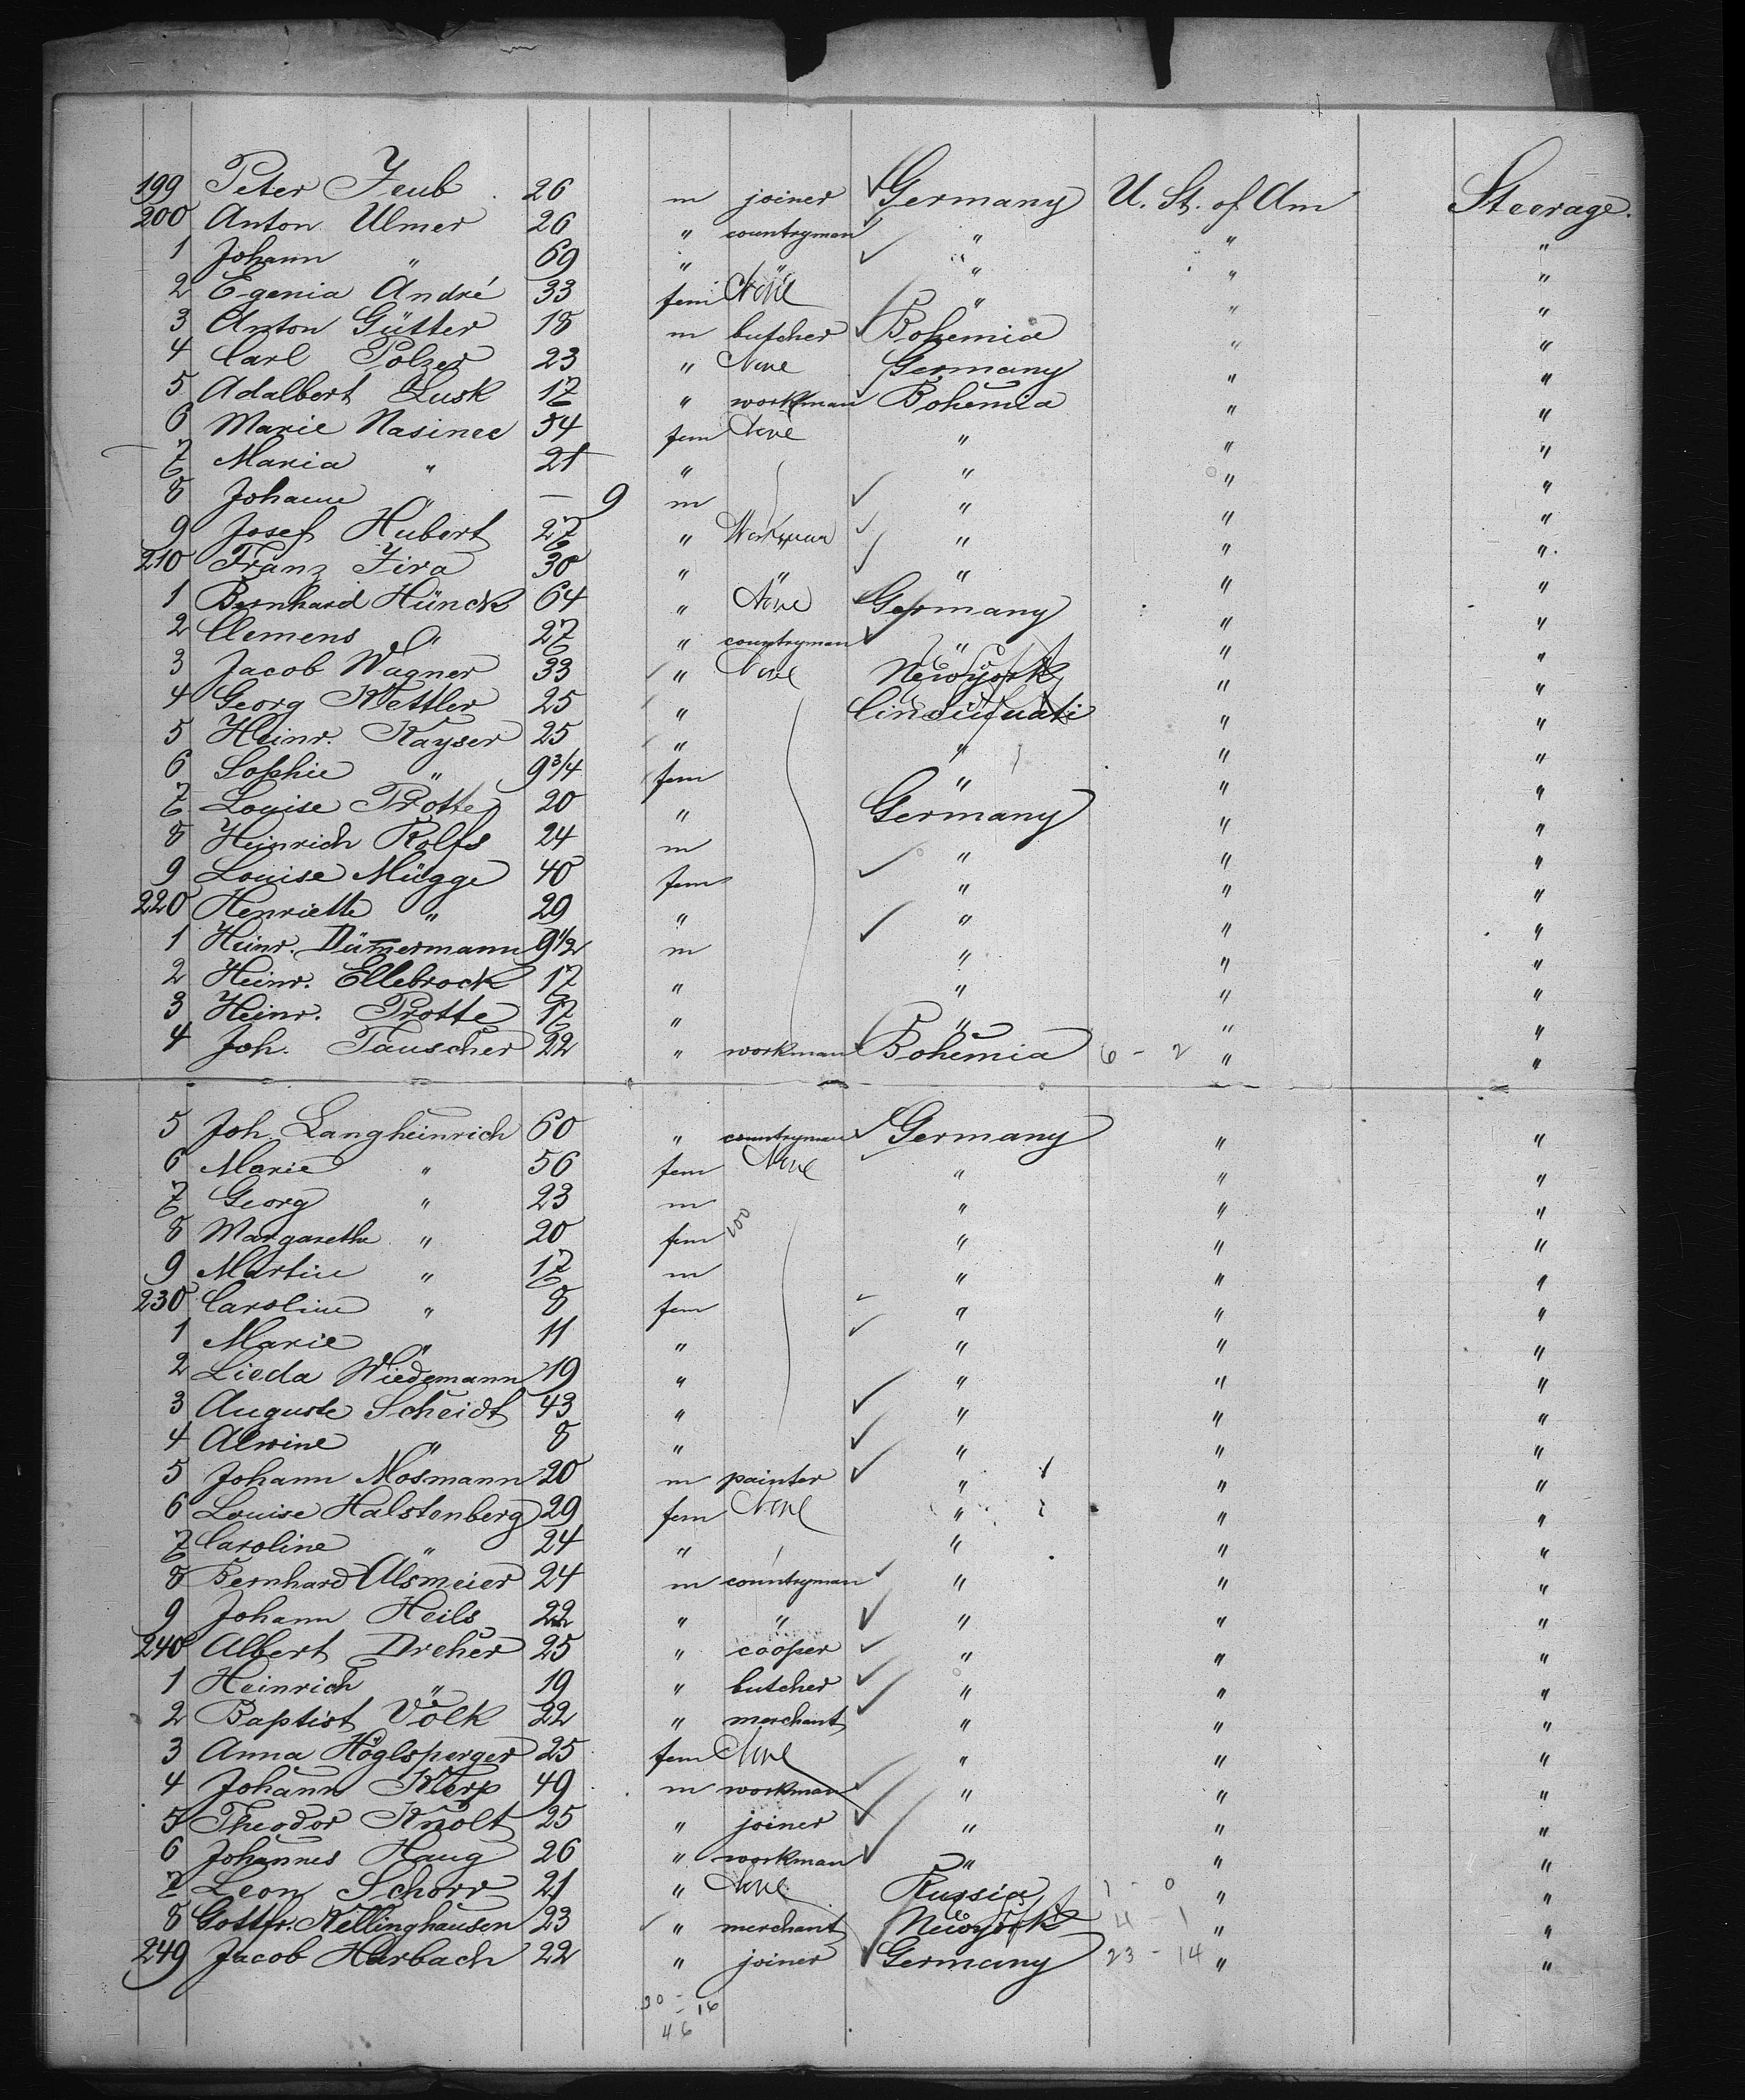 199 Peter Zeub 26 m joiner Germany U. St. of Am Steerage.
200 Anton Ulmer 26 " countryman " " "
1 Johann " 69 " " " " "
2 Egenia André 33 fem None " " "
3 Anton Gütter 18 m butcher Bohemia " "
4 Carl Polzer 23 " None Germany " "
5 Adalbert Lusk 17 " workman Bohemia " "
6 Marie Nasinec 54 fem None " " "
7 Maria " 21 " " " "
8 Johann " — 9 m " " "
9 Josef Hubert 27 " Workman " " "
210 Franz Jira 30 " " " " "
1 Bernhard Hünck 64 " None Germany " "
2 Clemens " 27 " countryman " " "
3 Jacob Wagner 33 " None Newyork "  "
4 Georg Kettler 25 " Cincinnati " "
5 Heinr. Kayser 25 " " " "
6 Sophie " 9 3/4 fem " " "
7 Louise Protte 20 " Germany " "
8 Heinrich Rolfs 24 m " " "
9 Louise Mügge 40 fem " " "
220 Henriette " 29 " " " "
1 Heinr. Dümermann 9 1/2 m " " "
2 Heinr. Ellebrock 17 " " " "
3 Heinr. Protte 17 " " " "
4 Joh. Tauscher 22 " workman Bohemia 6 - 2 " "
5 Joh. Langheinrich 60 " countryman Germany " "
6 Marie " 56 fem None " " "
7 Georg " 23 m " " "
8 Margarethe " 20 fem 100 " " "
9 Martin " 17 m " " "
230 Caroline " 8 fem " " "
1 Marie " 11 " " " "
2 Lieda Wiedemann 19 " " " "
3 Auguste Scheidt 43 " " " "
4 Alwine " 8 " " " "
5 Johann Mosmann 20 m painter " " "
6 Louise Halstenberg 29 fem None " " "
7 Caroline " 24 " " " "
8 Bernhard Alsmeier 24 m countryman " " "
9 Johann Heils 22 " " " " "
240 Albert Dreher 25 " cooper " " "
1 Heinrich " 19 " butcher " " "
2 Baptist Völk 22 " merchant " " "
3 Anna Höglsperger 25 fem None " " "
4 Johann Klerp 49 m workman " " "
5 Theodor Knolt 25 " joiner " " "
6 Johannes Haug 26 " workman " " "
7 Leon Schorr 21 " None Russia 1 - 0 " "
8 Gottfr. Kellinghausen 23 " merchant Newyork 4 - 1 " "
249 Jacob Harbach 22 " joiner Germany 23 - 14 " "
30 -
- 16
46